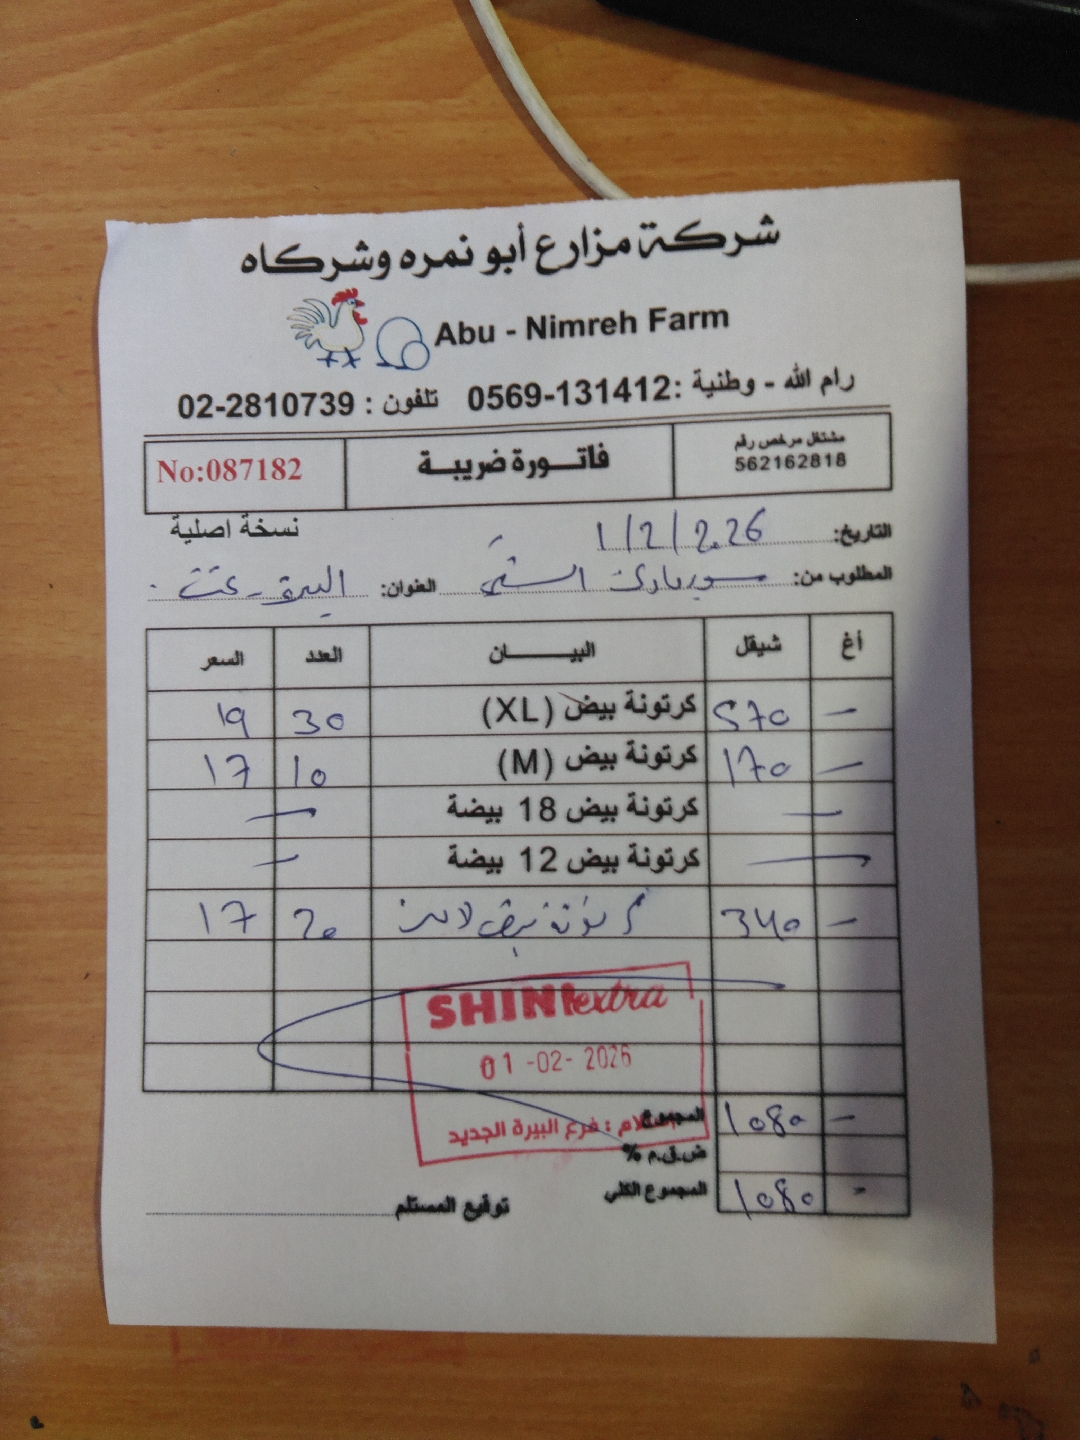 شركة مزارع أبو نمره وشركاه
Abu - Nimreh Farm
رام الله - وطنية :0569-131412 تلفون : 02-2810739
مشتغل مرخص رقم
562162818
فاتورة ضريبة
No:087182
نسخة اصلية
التاريخ: 1/2/2026
المطلوب من: سوبرماركت العنوان: البيرة
أغ شيقل البيان العدد السعر
- 570 كرتونة بيض (XL) 30 19
- 170 كرتونة بيض (M) 10 17
- كرتونة بيض 18 بيضة -
- كرتونة بيض 12 بيضة -
- 340 كرتونة بيض لارج 20 17
SHINI extra
01-02-2026
استلام : فرع البيرة الجديد
المجموع 1080 -
ض.ق.م %
المجموع الكلي 1080 -
توقيع المستلم